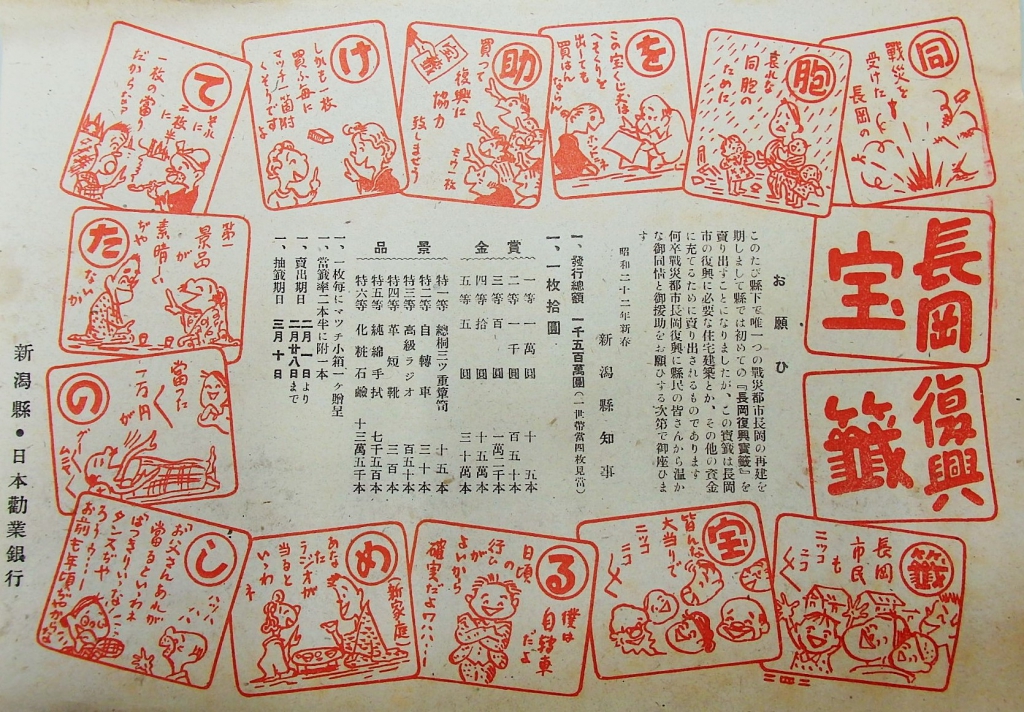 長岡
復興
宝
籤
同
戰災を
受けた
長岡の
胞
哀れな
同胞の
ために
を
この宝くじ丈は
へそくりを
出しても
買はん
助
宝籤
買って
復興に
協力
致しませう
モウ一枚
け
しかも一枚
買ふ毎に
マッチ一箇附
くさうですよ
て
それに
二枚半に
一枚の当り
だからなァ
た
第一
景品
が
素晴しい
ぢや
ない
か
の
當った
一万円
が
し
お父さんあれが
當るといいわね
ばっさりいふな
タンスだや
お前も年頃ぢやから
め
新家庭
あなた
ラジオが
当ると
いいわネ
る
僕は
自轉車
だよ
日頃の
行ひ
が
よいから
確実だよワハハ
宝
皆んな
大当りで
ニッコ
ニコ
籤
長岡
市民
も
ニッコ
ニコ
お願ひ
このたび縣下で唯一つの戰災都市長岡の再建を
期しまして縣では初めての『長岡復興寳籤』を
賣り出すことになりましたが、この寳籤は長岡
市の復興に必要な住宅建築とか、その他の資金
に充てるために賣り出されるものであります
何卒戰災都市長岡復興に縣民の皆さんから温か
な御同情と御援助をお願ひする次第で御座ひま
す
昭和二十二年新春
新潟縣知事
一、發行總額 一千五百萬圓(一世帶當四枚見當)
一、一枚拾圓
賞金
一等 一萬圓 十五本
二等 一千圓 百五十本
三等 百圓 一萬二千本
四等 拾圓 十五萬本
五等 五圓 三十萬本
景品
特一等 總桐三ッ重簞笥 十五本
特二等 自轉車 三十本
特三等 高級ラジオ 百五十本
特四等 革短靴 三百本
特五等 純綿手拭 七千五百本
特六等 化粧石鹼 十三萬五千本
一、一枚毎にマツチ小箱一ケ贈呈
一、當籤率二本半に附一本
一、賣出期日 二月一日より
二月廿八日まで
一、抽籤期日 三月十日
新潟縣・日本勸業銀行